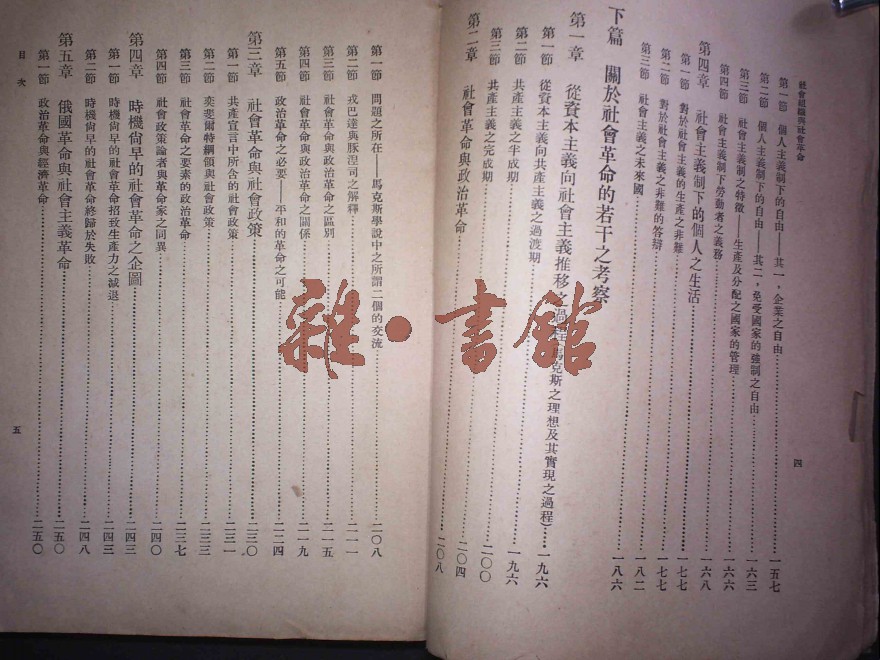 社會組織與社會革命
第一節 個人主義制下的自由——其一，企業之自由 一五七
第二節 個人主義制下的自由——其二，免受國家的強制之自由 一六三
第三節 社會主義制之特徵——生產及分配之國家的管理 一六六
第四節 社會主義制下勞動者之義務 一六八
第四章 社會主義制下的個人之生活
第一節 對於社會主義的生產之非難 一七七
第二節 對於社會主義之非難的答辯 一七七
第三節 社會主義之未來國 一八二
下篇 關於社會革命的若干之考察 一八六
第一章 從資本主義向社會主義推移之過程（馬克斯之理想及其實現之過程） 一九六
第一節 從資本主義向共產主義之過渡期
第二節 共產主義之半成期 一九六
第三節 共產主義之完成期 二〇〇
第二章 社會革命與政治革命 二〇四
二〇八
四
第一節 問題之所在——馬克斯學說中之所謂二個的交流 二〇八
第二節 戎巴達與豚涅司之解釋 二一一
第三節 社會革命與政治革命之區別 二一五
第四節 社會革命與政治革命之關係 二一九
第五節 政治革命之必要——平和的革命之可能 二二四
第三章 社會革命與社會政策 二三〇
第一節 共產宣言中所含的社會政策 二三一
第二節 奕斐爾特綱領與社會政策 二三三
第三節 社會革命之要素的政治革命 二三七
第四節 社會政策論者與革命家之同異 二四〇
第四章 時機尙早的社會革命之企圖 二四三
第一節 時機尙早的社會革命招致生產力之減退 二四三
第二節 時機尙早的社會革命終歸於失敗 二四八
第五章 俄國革命與社會主義革命 二五〇
第一節 政治革命與經濟革命 二五〇
目次
五
雜·書館